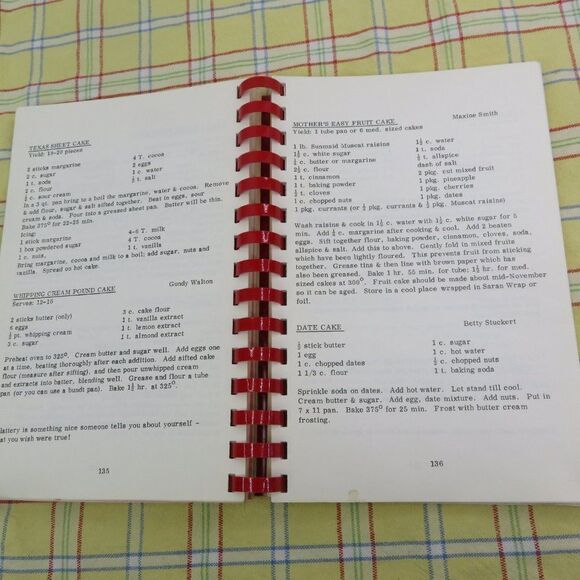 TEXAS SHEET CAKE
Yield: 18-20 pieces
2 sticks margarine 4 T. cocoa
2 c. sugar 2 eggs
1 t. soda 1 c. water
2 c. flour ½ t. salt
½ c. sour cream
In a 3 qt. pan bring to a boil the margarine, water & cocoa. Remove
& add flour, sugar & salt sifted together. Beat in eggs, sour
cream & soda. Pour into a greased sheet pan. Batter will be thin.
Bake 375° for 22-25 min.
Icing:
1 stick margarine 4-6 T. milk
1 box powdered sugar 4 T. cocoa
1 c. nuts, 1 t. vanilla
Bring margarine, cocoa and milk to a boil; add sugar, nuts and
vanilla. Spread on hot cake.
Gundy Walton
WHIPPING CREAM POUND CAKE
Serves: 12-15
2 sticks butter (only) 3 c. cake flour
6 eggs 1 t. vanilla extract
½ pt. whipping cream 1 t. lemon extract
3 c. sugar 1 t. almond extract
Preheat oven to 325°. Cream butter and sugar well. Add eggs one
at a time, beating thoroughly after each addition. Add sifted cake
flour (measure after sifting), and then pour unwhipped cream
and extracts into batter, blending well. Grease and flour a tube
pan (or you can use a bundt pan). Bake 1½ hr. at 325°.
lattery is something nice someone tells you about yourself -
at you wish were true!
135
MOTHER'S EASY FRUIT CAKE Maxine Smith
Yield: 1 tube pan or 6 med. sized cakes
1 lb. Sunmaid Muscat raisins 1½ c. water
1½ c. white sugar 1 t. soda
½ c. butter or margarine ½ t. allspice
2½ c. flour dash of salt
1 t. cinnamon 2 pkg. cut mixed fruit
1 t. baking powder 1 pkg. pineapple
½ t. cloves 1 pkg. cherries
1 c. chopped nuts 1 pkg. dates
1 pkg. currants (or ½ pkg. currants & ½ pkg. Muscat raisins)
Wash raisins & cook in 1½ c. water with 1½ c. white sugar for 5
min. Add ½ c. margarine after cooking & cool. Add 2 beaten
eggs. Sift together flour, baking powder, cinnamon, cloves, soda,
allspice & salt. Add this to above. Gently fold in mixed fruits
which have been lightly floured. This prevents fruit from sticking
together. Grease tins & then line with brown paper which has
also been greased. Bake 1 hr. 55 min. for tube; 1½ hr. for med.
sized cakes at 300°. Fruit cake should be made about mid-November
so it can be aged. Store in a cool place wrapped in Saran Wrap or
foil.
DATE CAKE Betty Stuckert
½ stick butter 1 c. sugar
1 egg 1 c. hot water
1 c. chopped dates ½ c. chopped nuts
1 1/3 c. flour 1 t. baking soda
Sprinkle soda on dates. Add hot water. Let stand till cool.
Cream butter & sugar. Add egg, date mixture. Add nuts. Put in
7 x 11 pan. Bake 375° for 25 min. Frost with butter cream
frosting.
136